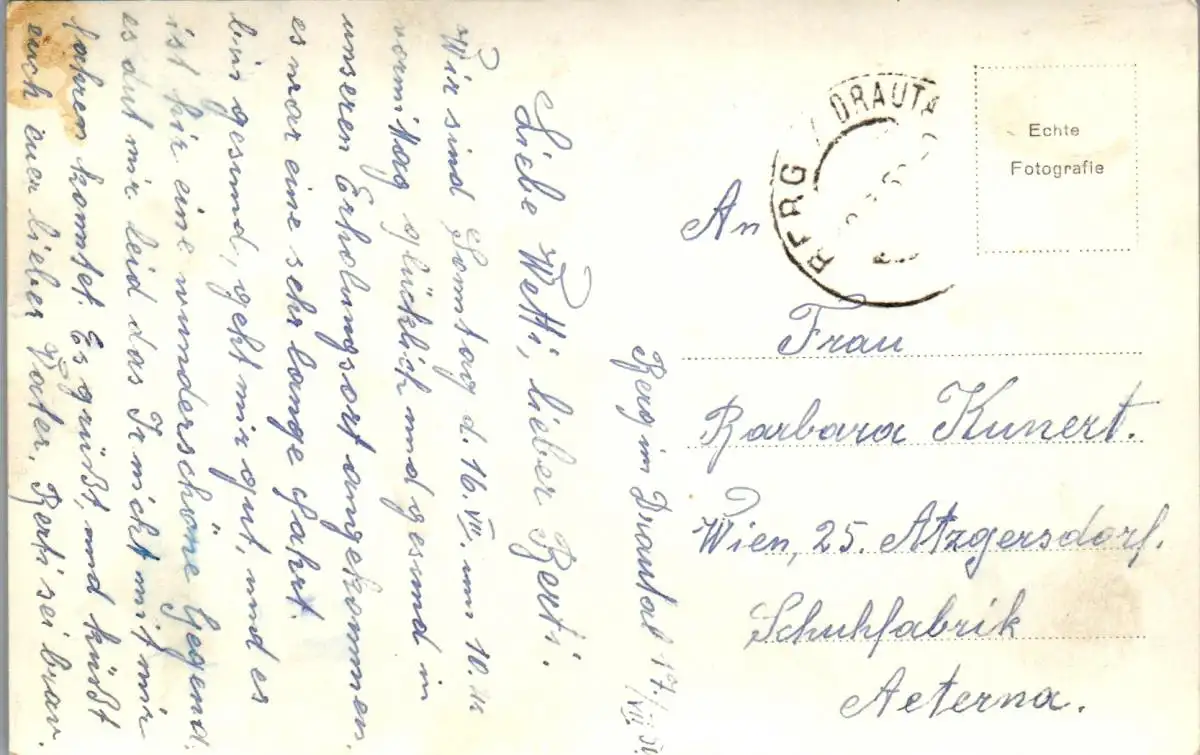 Berg im Drautal 17./VII. 50.
Liebe Wetti, lieber Berti.
Wir sind Sonntag d. 16. VII. um 10. h
vormittag glücklich und gesund in
unseren Erholungsort angekommen,
es war eine sehr lange Fahrt.
bin gesund, geht mir gut, und es
ist hir eine wunderschöne Gegend.
es dut mir leid das Ir nicht mit mir
fahren konntet. Es grüßt, und küßt
euch euer lieber Vater. Berti sei brav.
BERG / DRAUTA
Echte
Fotografie
An
Frau
Barbara Kunert.
Wien, 25. Atzgersdorf.
Schuhfabrik
Aeterna.